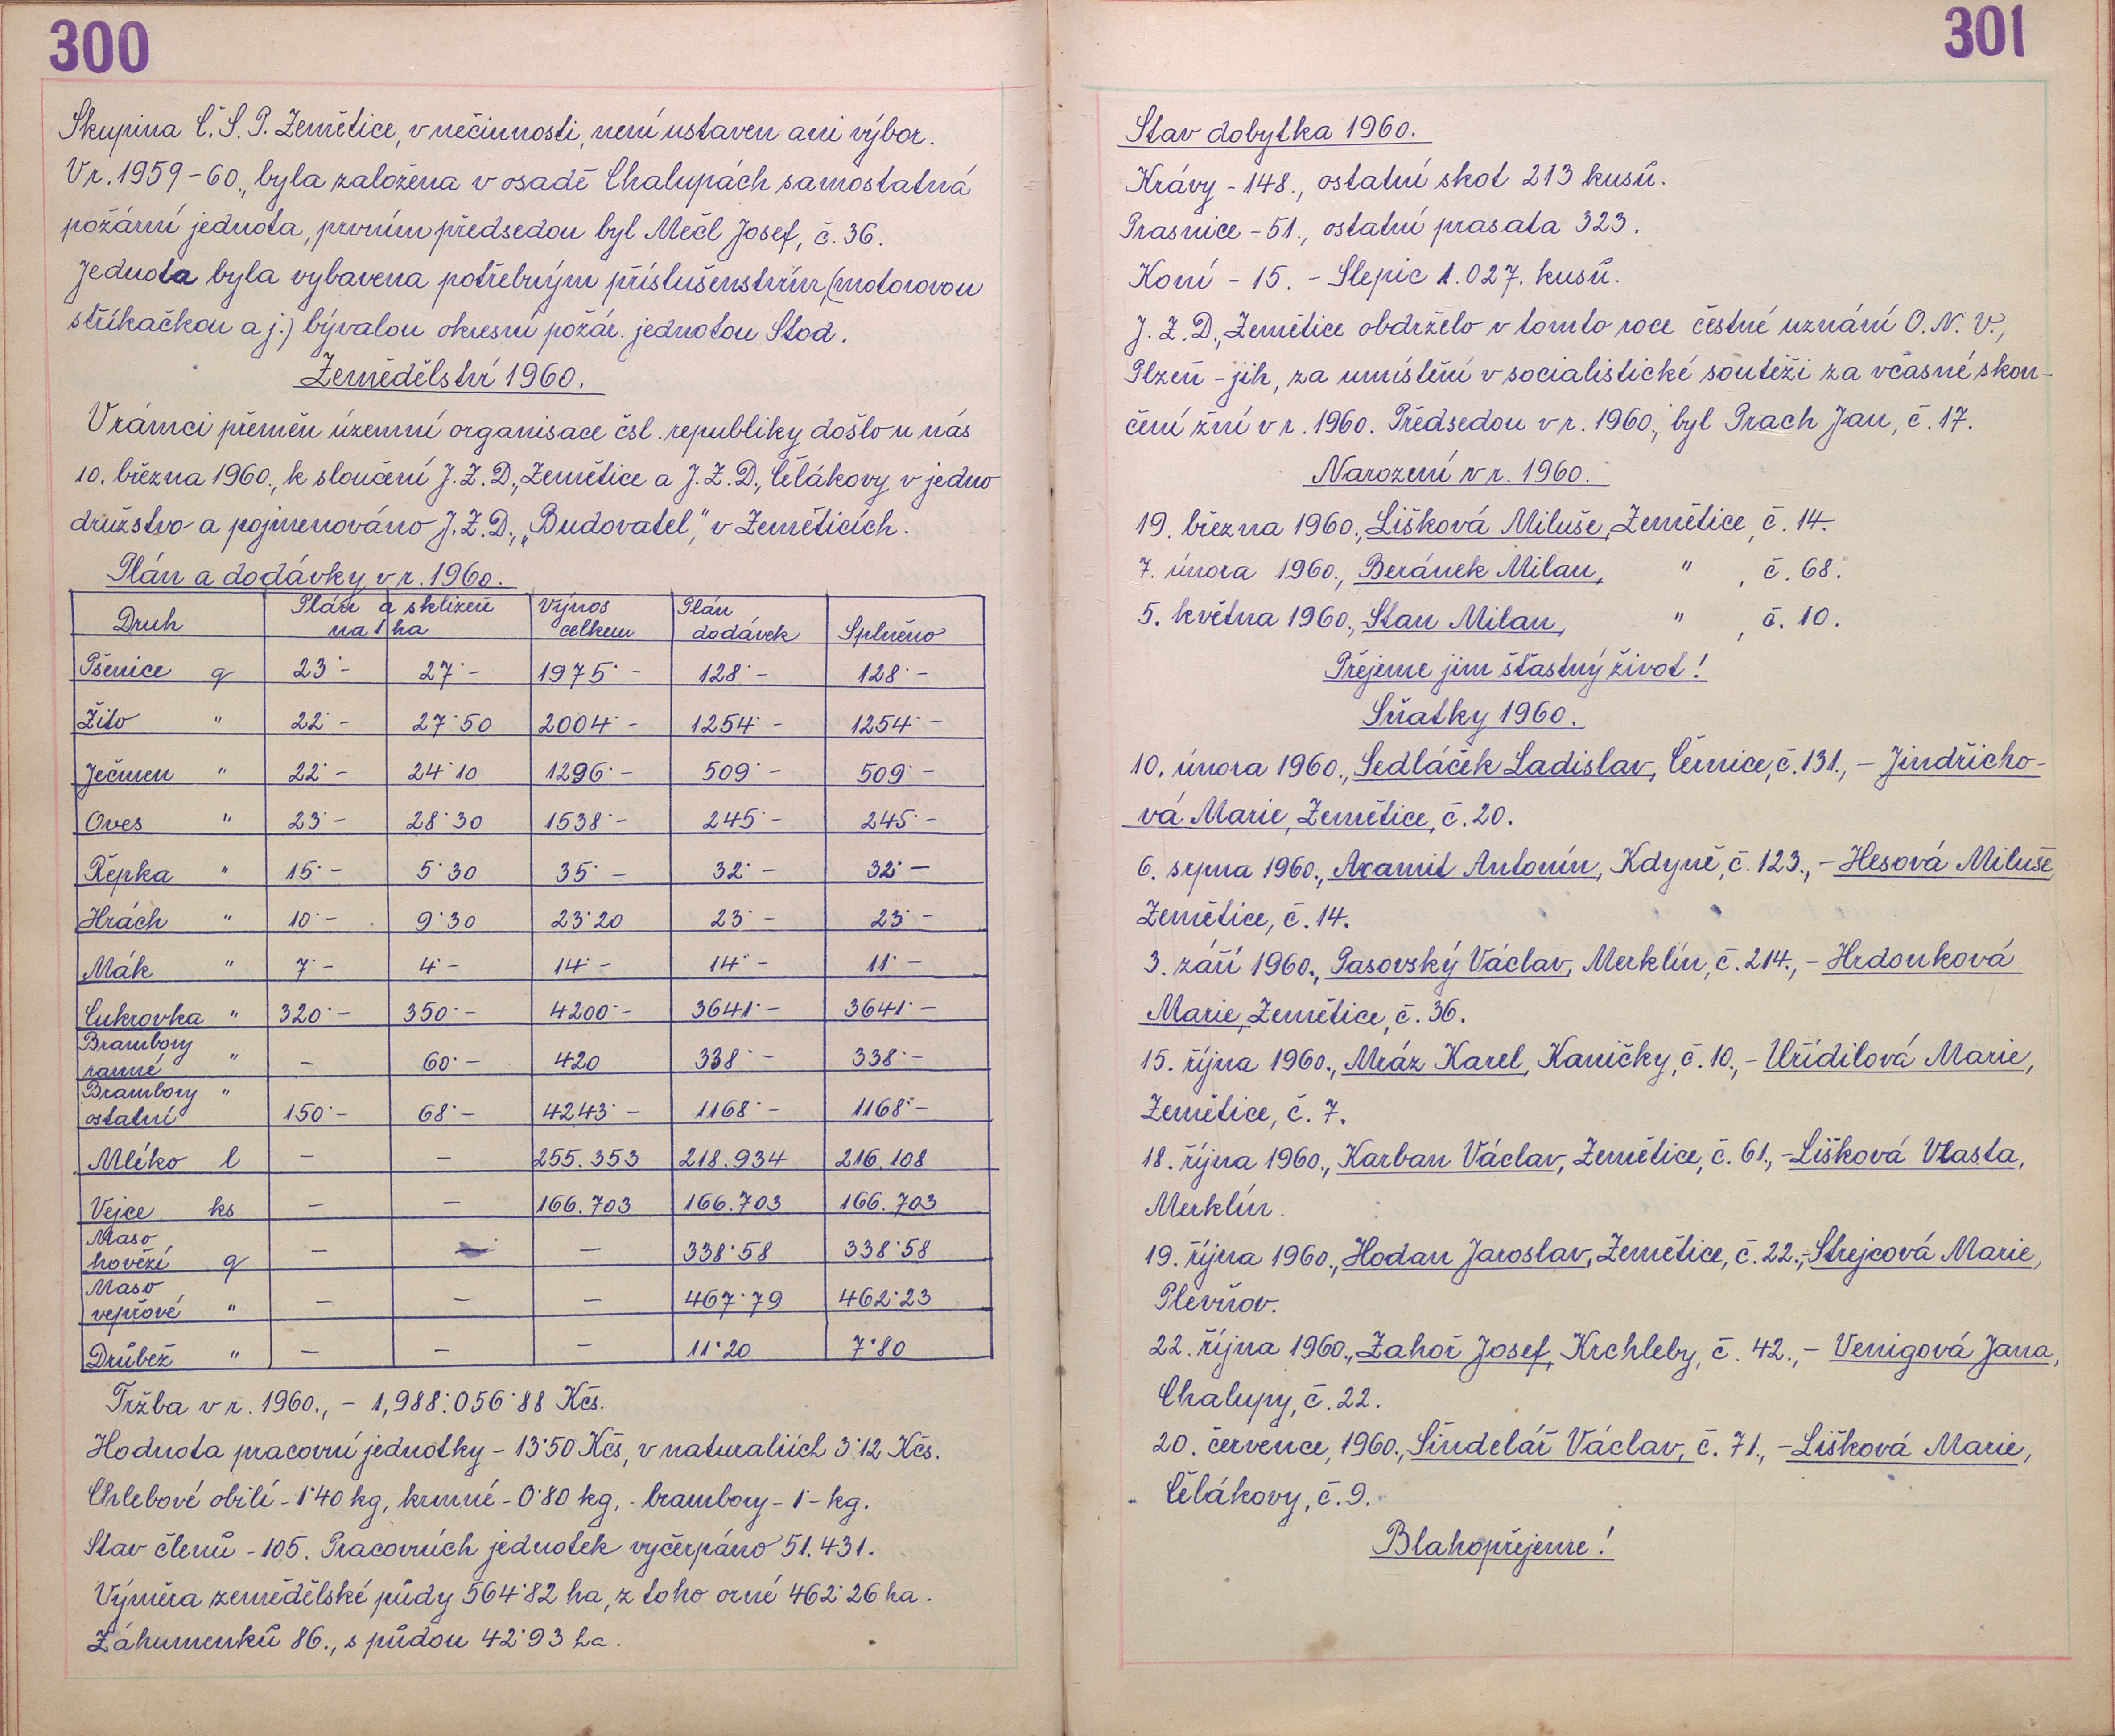 300
Skupina Č. S. P. Zemětice, v nečinnosti, není ustaven ani výbor.
V r. 1959-60., byla založena v osadě Chalupách samostatná
požární jednota, prvním předsedou byl Mečl Josef, č. 36.
Jednota byla vybavena potřebným příslušenstvím, (motorovou
stříkačkou a j.) bývalou okresní požár. jednotou Stod.
Zemědělství 1960.
V rámci přeměn územní organisace čsl. republiky došlo u nás
10. března 1960., k sloučení J. Z. D., Zemětice a J. Z. D., Čelákovy v jedno
družstvo a pojmenováno J. Z. D., „Budovatel," v Zeměticích.
Plán a dodávky v r. 1960.
Druh Plán a sklizeň na 1 ha Výnos celkem Plán dodávek Splněno
Pšenice q 23˙- 27˙- 1975˙- 128˙- 128˙-
Žito " 22˙- 27˙50 2004˙- 1254˙- 1254˙-
Ječmen " 22˙- 24˙10 1296˙- 509˙- 509˙-
Oves " 23˙- 28˙30 1538˙- 245˙- 245˙-
Řepka " 15˙- 5˙30 35˙- 32˙- 32˙-
Hrách " 10˙- 9˙30 23˙20 23˙- 23˙-
Mák " 7˙- 4˙- 14˙- 14˙- 11˙-
Cukrovka " 320˙- 350˙- 4200˙- 3641˙- 3641˙-
Brambory ranné " - 60˙- 420 338˙- 338˙-
Brambory ostatní " 150˙- 68˙- 4243˙- 1168˙- 1168˙-
Mléko l - - 255.353 218.934 216.108
Vejce ks - - 166.703 166.703 166.703
Maso hovězí q - - - 338˙58 338˙58
Maso vepřové " - - - 467˙79 462˙23
Drůbež " - - - 11˙20 7˙80
Tržba v r. 1960., - 1,988˙056˙88 Kčs.
Hodnota pracovní jednotky - 13˙50 Kčs, v naturaliích 3˙12 Kčs.
Chlebové obilí - 1˙40 kg, krmné - 0˙80 kg, - brambory - 1˙- kg.
Stav členů - 105. Pracovních jednotek vyčerpáno 51.431.
Výměra zemědělské půdy 564˙82 ha, z toho orné 462˙26 ha.
Záhumenků 86., s půdou 42˙93 ha.
301
Stav dobytka 1960.
Krávy - 148., ostatní skot 213 kusů.
Prasnice - 51., ostatní prasata 323.
Koní - 15. - Slepic 1.027. kusů.
J. Z. D., Zemětice obdrželo v tomto roce čestné uznání O. N. V.,
Plzeň - jih, za umístění v socialistické soutěži za včasné skon-
čení žní v r. 1960. Předsedou v r. 1960., byl Prach Jan, č. 17.
Narození v r. 1960.
19. března 1960., Lišková Miluše, Zemětice, č. 14.
7. února 1960., Beránek Milan, " , č. 68.
5. května 1960., Stan Milan, " , č. 10.
Přejeme jim šťastný život!
Sňatky 1960.
10. února 1960., Sedláček Ladislav, Černice, č. 131., - Jindřicho-
vá Marie, Zemětice, č. 20.
6. srpna 1960., Axamit Antonín, Kdyně, č. 123., - Hesová Miluše,
Zemětice, č. 14.
3. září 1960., Pasovský Václav, Merklín, č. 214., - Hrdonková
Marie, Zemětice, č. 36.
15. října 1960., Mráz Karel, Kaničky, č. 10., - Uřídilová Marie,
Zemětice, č. 7.
18. října 1960., Karban Václav, Zemětice, č. 61., - Lišková Vlasta,
Merklín.
19. října 1960., Hodan Jaroslav, Zemětice, č. 22., - Strejcová Marie,
Plevňov.
22. října 1960., Zahoř Josef, Krchleby, č. 42., - Venigová Jana,
Chalupy, č. 22.
20. července, 1960., Šindelář Václav, č. 71., - Lišková Marie,
Čelákovy, č. 9.
Blahopřejeme!